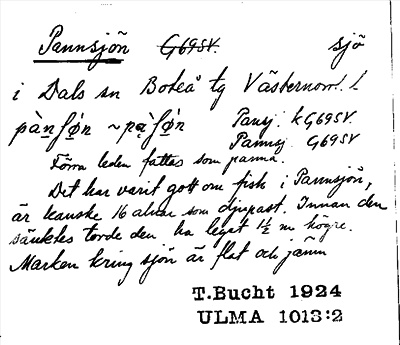 Pannsjön G69SV. sjö
i Dals sn Boteå tg Västernorrl. l
pàn̠ʃø̀n ~ pa̠ʃø̀n Pansj. k G69SV
Pannsj. G69SV
Förra leden fattas som panna.
Det har varit gott om fisk i Pannsjön,
är kanske 16 alnar som djupast. Innan den
sänktes torde den ha legat 1½ m högre.
Marken kring sjön är flat och jämn
T.Bucht 1924
ULMA 1013:2